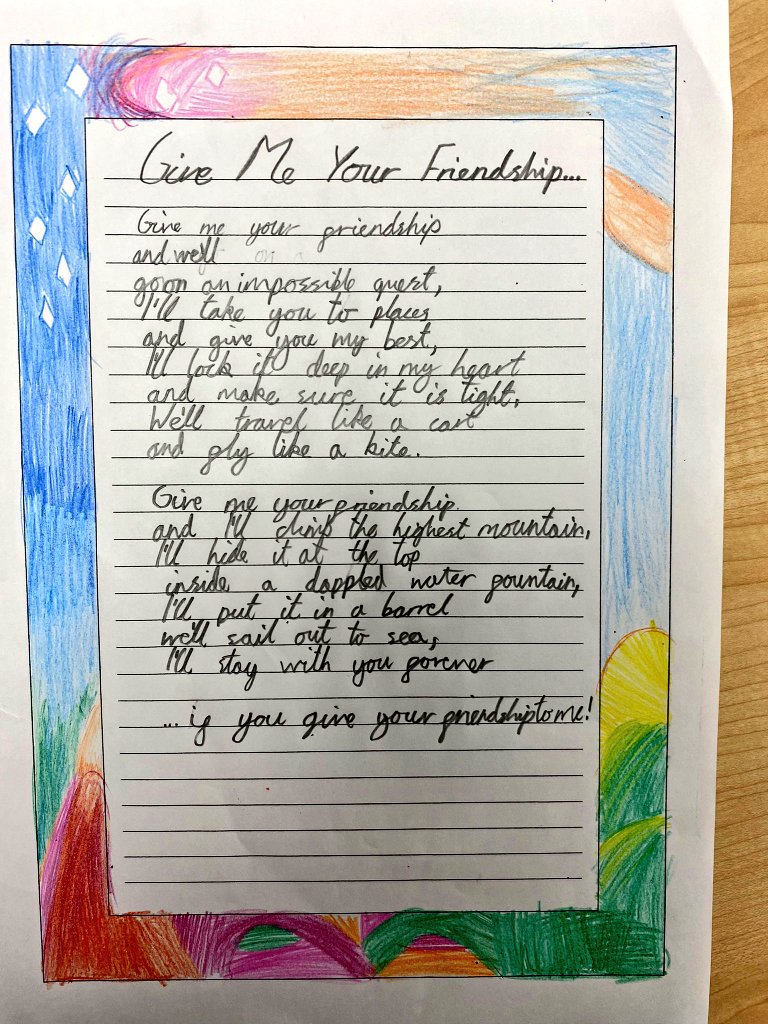 Give Me Your Friendship...
Give me your friendship
and we'll
go on an impossible quest,
I'll take you to places
and give you my best,
I'll lock it deep in my heart
and make sure it is tight,
We'll travel like a cart
and fly like a kite.
Give me your friendship
and I'll climb the highest mountain,
I'll hide it at the top
inside a dappled water fountain,
I'll put it in a barrel
we'll sail out to sea,
I'll stay with you forever
... if you give your friendship to me!